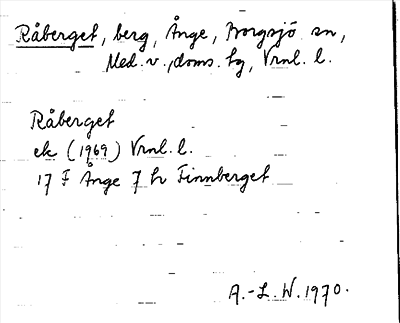 Råberget, berg, Ånge, Borgsjö sn,
Med. v. ,doms. tg, Vrnl. l.
Råberget
ek (1969) Vrnl. l.
17 F Ånge 7 h Finnberget
A.-L. W. 1970.